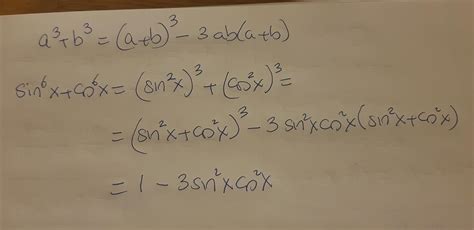 a³+b³ = (a+b)³ - 3ab(a+b)
sin⁶x + co⁶x = (sin²x)³ + (co²x)³ =
= (sn²x+co²x)³ - 3sn²xco²x(sn²x+co²x)
= 1 - 3sn²xco²x